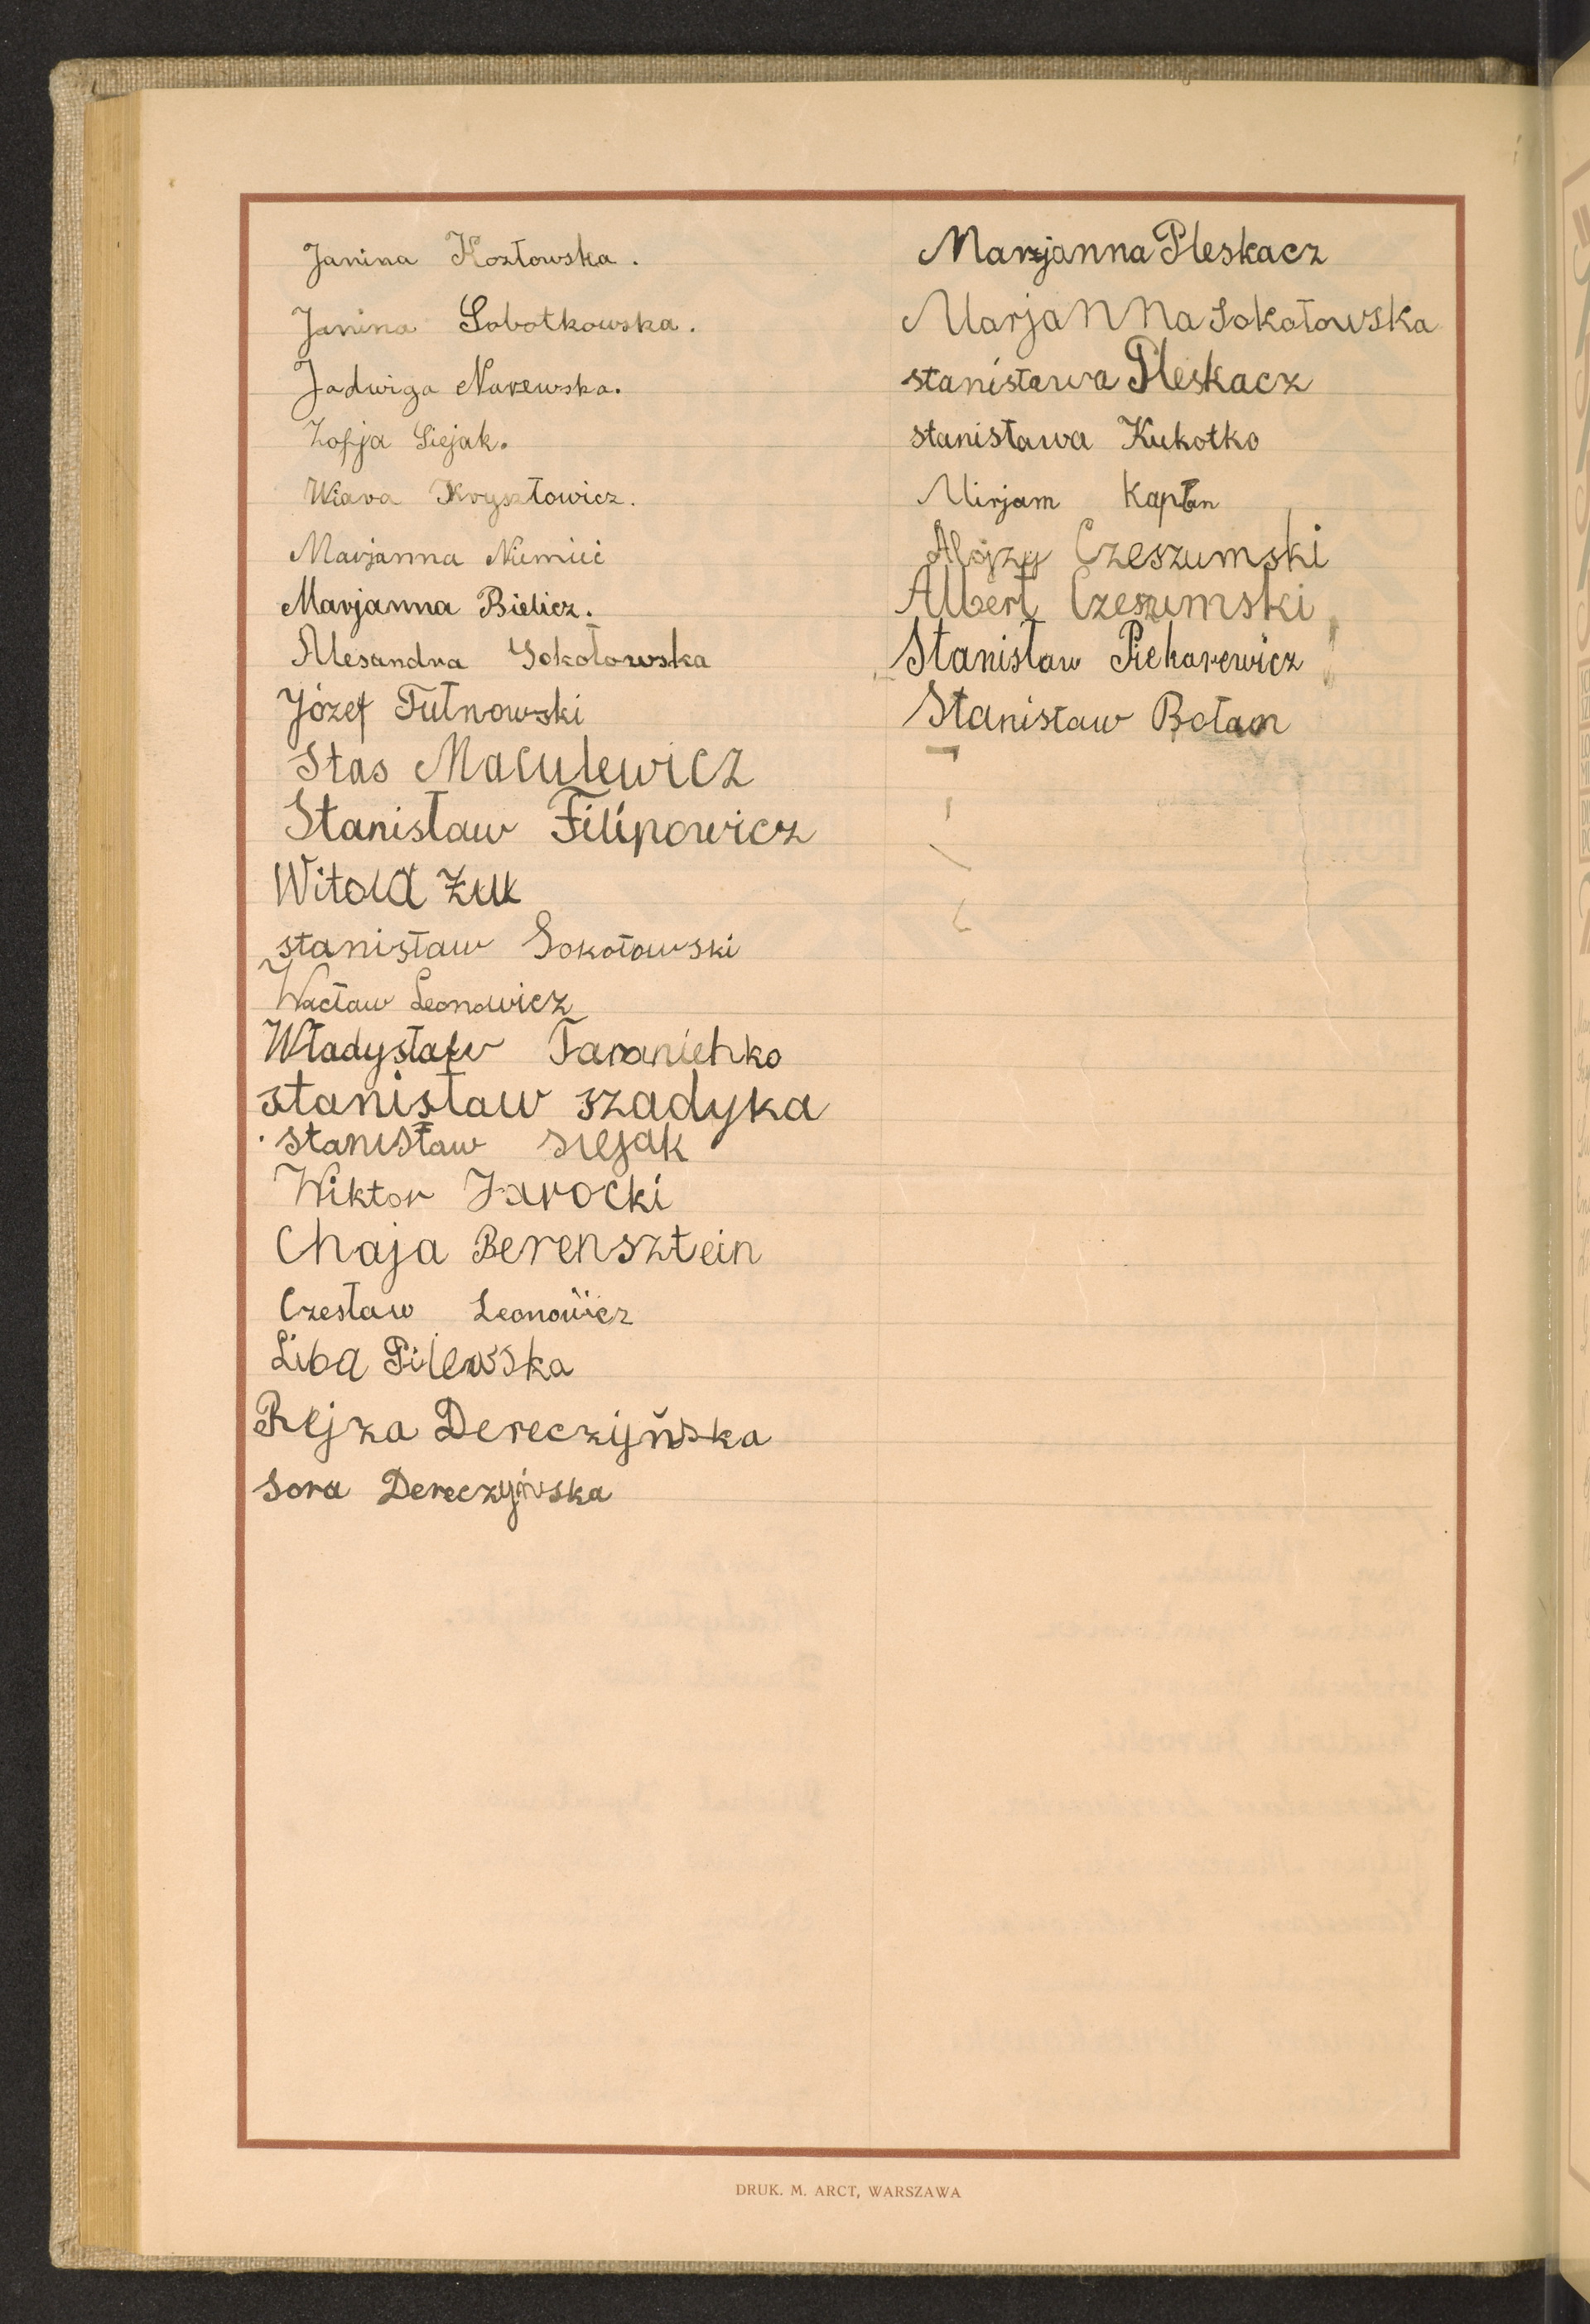 Janina Kozłowska.
Janina Sobotkowska.
Jadwiga Narewska.
Zofja Siejak.
Wiara Krysztowicz.
Marjanna Niemiec
Marjanna Bielicz.
Alesandra Sokołowska
Józef Tutnowski
Stas Maculewicz
Stanisław Filipowicz
Witold Żuk
stanisław Sokołowski
Wacław Leonowicz
Władysław Taranienko
stanisław szadyka
stanisław siejak
Wiktor Jarocki
Chaja Berensztein
Czesław Leonowicz
Liba Pilewska
Rejza Dereczyńska
Sora Dereczyńska
Marzjanna Pleskacz
Marjanna Sokołowska
stanisława Pleskacz
stanisława Kukotko
Mirjam Kapłan
Alojzy Czeszumski
Albert Czeszumski
Stanisław Piekarewicz
Stanisław Bołan
DRUK. M. ARCT, WARSZAWA